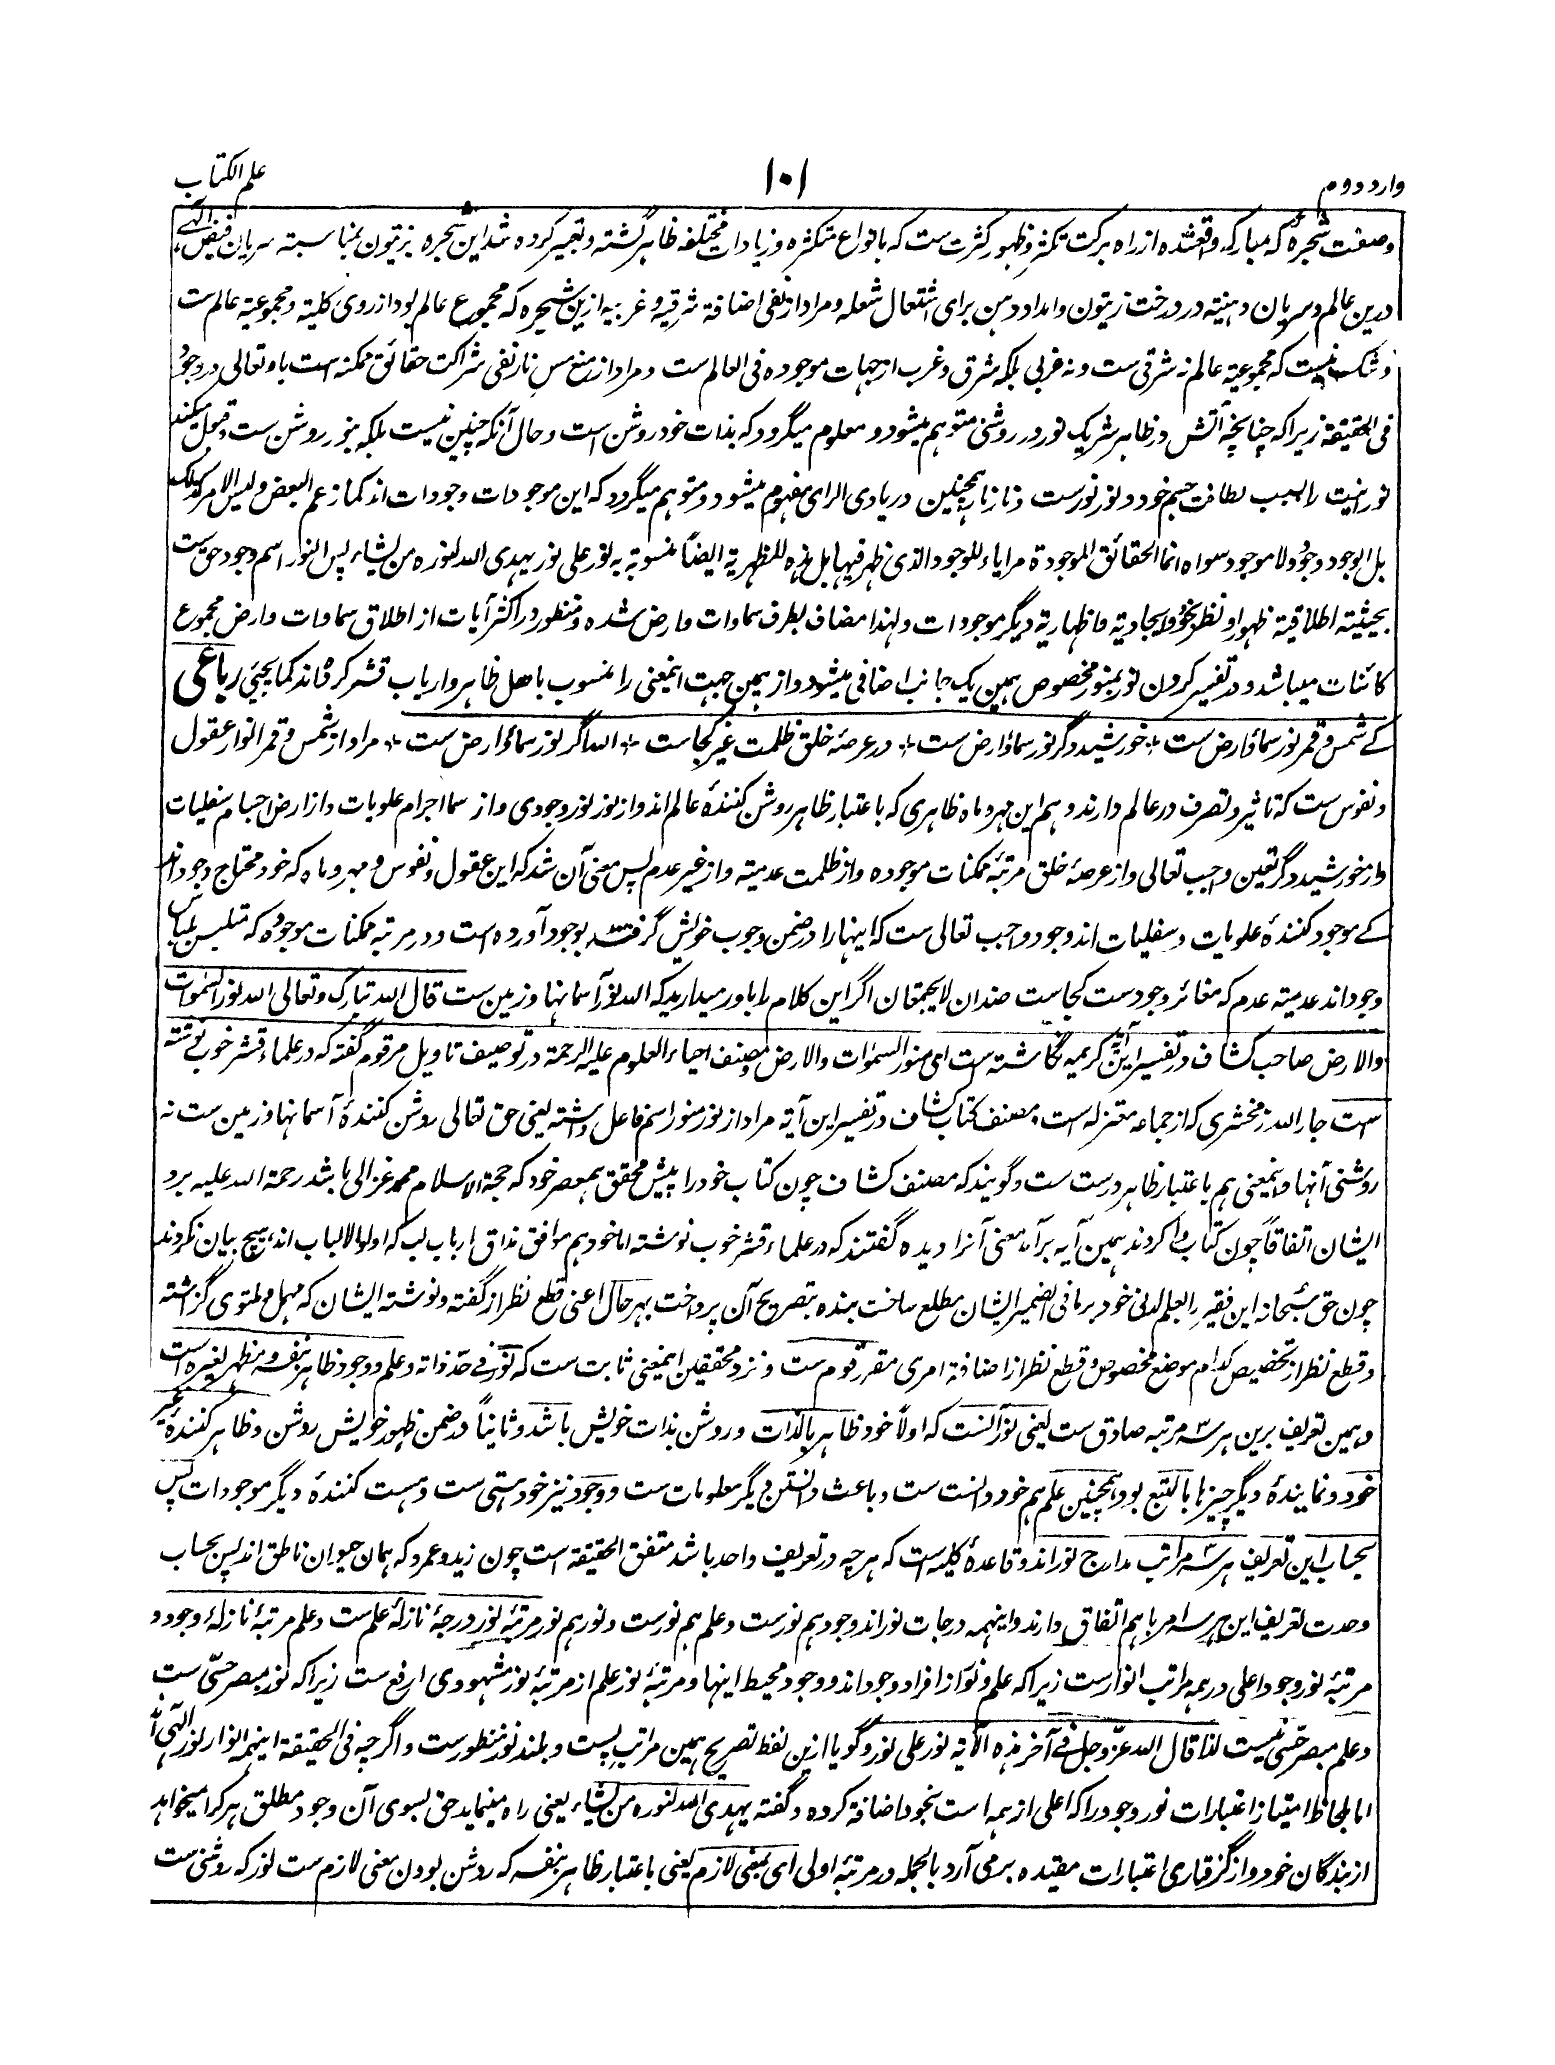 وارد دوم
۱۰۱
علم الکتاب
وصفت شجرهٔ که مبارکه واقعشده از راه برکت تکثر و ظهور کثرت ست که بانواع متکثره و زیادات مختلفه ظاهر گشته و تعبیر کرده شد این شجره بزیتون بمناسبته سریان فیض الٰهی
درین عالم و سریان دهنیته در درخت زیتون و امداد دهن برای اشتعال شعله و مراد از نفی اضافة شرقیه و غربیه ازین شجره که مجموع عالم بود از روی کلیته و مجموعیة عالم ست
و شک نیست که مجموعیة عالم نه شرقی ست و نه غربی بلکه شرق و غرب از جهات موجوده فی العالم ست و مراد از منع مس نار نفی شراکت حقائق ممکنه است باو تعالی در وجود
فی الحقیقة زیرا که چنانچه آتش در ظاهر شریک نور در روشنی متوهم میشود و معلوم میگردد که بذات خود روشن است و حال آنکه چنین نیست بلکه بنور روشن ست و قبول میکند
نورانیت را بسبب لطافت جسم خود و نور نورست و نار نار همچنین در بادی الرای مفهوم میشود و متوهم میگردد که این موجودات وجودات اند کما زعم البعض و لیس الامر کذلک
بل الوجود وجود و لا موجود سواه انما الحقائق الموجودة مرایاء للوجود الذی ظهر فیها بل هذه المظهریة ایضاً منسوبة به نور علی نور یهدی الله لنوره من یشاء پس النور اسم وجود حق ست
بحیثیته اطلاقیته ظهور او نظر بخود و ایجادیة و اظهاریة دیگر موجودات و لهذا مضاف بطرف سماوات و ارض شده و منظور در اکثر آیات از اطلاق سماوات و ارض مجموع
کائنات میباشد و در تفسیر کردن نور بمنور مخصوص بهمین یک جانب اضافی میشود و از همین جهت اینمعنی را منسوب باهل ظاهر و ارباب قشر کرده اند کما یجیئی رباعی
کے شمس و قمر نور سماؤ ارض ست * خورشید دگر نور سماؤ ارض ست * در عرصهٔ خلق ظلمت غیر کجاست * الله اگر نور سماؤ ارض ست * مراد از شمس و قمر انوار عقول
و نفوس ست که تاثیر و تصرف در عالم دارند و هم این مهر و ماه ظاهری که باعتبار ظاهر روشن کنندهٔ عالم اند و از نور نور وجودی و از سما اجرام علویات و از ارض اجسام سفلیات
و از خورشید دگر تعین واجب تعالی و از عرصهٔ خلق مرتبهٔ ممکنات موجوده و از ظلمت عدمیته و از غیر عدم پس معنی آن شد که این عقول و نفوس و مهر و ماه که خود محتاج وجود اند
کے موجود کنندهٔ علویات و سفلیات اند وجود واجب تعالی ست که اینها را در ضمن وجوب خویش گرفته بوجود آورده است و در مرتبه ممکنات موجوده که متلبس بلباس
وجود اند عدمیته عدم که مغائر وجودست کجاست ضدان لا یجتمعان اگر این کلام را باور میدارید که الله نور آسمانها و زمین ست قال الله تبارک و تعالی الله نور السمٰوات
والارض صاحب کشاف در تفسیر این آیۀ کریمه نگاشته ست ای منور السمٰوات والارض و مصنف احیاء العلوم علیه الرحمة در توصیف تاویل مرقوم گفته که در علماء قشر خوب نوشته
ست جار الله زمخشری که از جماعه معتزله است مصنف کتاب کشاف در تفسیر این آیة مراد از نور منور اسم فاعل داشته یعنی حق تعالی روشن کنندهٔ آسمانها و زمین ست نه
روشنی آنها و اینمعنی هم باعتبار ظاهر درست ست و گویند که مصنف کشاف چون کتاب خود را پیش محقق همعصر خود که حجة الاسلام محمد غزالی باشد رحمة الله علیه برد
ایشان اتفاقاً چون کتاب وا کردند همین آیه برآمد معنی آنرا دیده گفتند که در علماء قشر خوب نوشته اما خود هم موافق مذاق ارباب لب که اولوا الالباب اند هیچ بیان نکردند
چون حق سبحانه این فقیر را بعلم لدنی خود بر ما فی الضمیر ایشان مطلع ساخت بنده بتصریح آن پرداخت بهر حال اعنی قطع نظر از گفته و نوشته ایشان که مهمل و ملتوی گزاشته
و قطع نظر از تخصیص کدام موضع مخصوص و قطع نظر از اضافة امری مقرر قوم ست و نزد محققین اینمعنی ثابت ست که نور فے حد ذاته و علم و وجود ظاهر بنفسه و مظهر لغیره است
و همین تعریف برین هر سه مرتبه صادق ست یعنی نور آنست که اولاً خود ظاهر بالذات و روشن بذات خویش باشد و ثانیاً در ضمن ظهور خویش روشن و ظاهر کنندهٔ غیر
خود و نمایندهٔ دیگر چیزها بالتبع بود و همچنین علم هم خود دانست ست و باعث دانستن دیگر معلومات ست و وجود نیز خود هستی ست و هست کنندهٔ دیگر موجودات پس
بحساب این تعریف هر سه مراتب مدارج نور اند و قاعدهٔ کلیه است که هر چه در تعریف واحد باشد متفق الحقیقة است چون زید و عمرو که همان حیوان ناطق اند پس بحساب
وحدت تعریف این هر سه امر باهم اتفاق دارند و اینهمه درجات نور اند وجود هم نورست و علم هم نورست و نور هم نور مرتبهٔ نور درجهٔ نازلهٔ علم ست و علم مرتبهٔ نازلهٔ وجود و
مرتبهٔ نور وجود اعلی در همه مراتب انوارست زیرا که علم و نور از افراد وجود اند و وجود محیط اینها و مرتبهٔ نور علم از مرتبهٔ نور مشهودی ارفع ست زیرا که نور مبصر حسّی ست
و علم مبصر حسّی نیست لذا قال الله عزّ و جل فے آخر هذه الآیة نور علی نور و گویا ازین لفظ تصریح همین مراتب پست و بلند نور منظورست و اگرچه فی الحقیقة اینهمه انوار نور الٰهی اند
اما بلحاظ امتیاز اعتبارات نور وجود را که اعلی از همه است بخود اضافة کرده و گفته یهدی الله لنوره من یشاء یعنی راه مینماید حق بسوی آن وجود مطلق هر کرا میخواهد
از بندگان خود و از گرفتاری اعتبارات مقیده برمی آرد بالجمله در مرتبهٔ اولی ای بمعنی لازم یعنی باعتبار ظاهر بنفسه که روشن بودن معنی لازم ست نور که روشنی ست